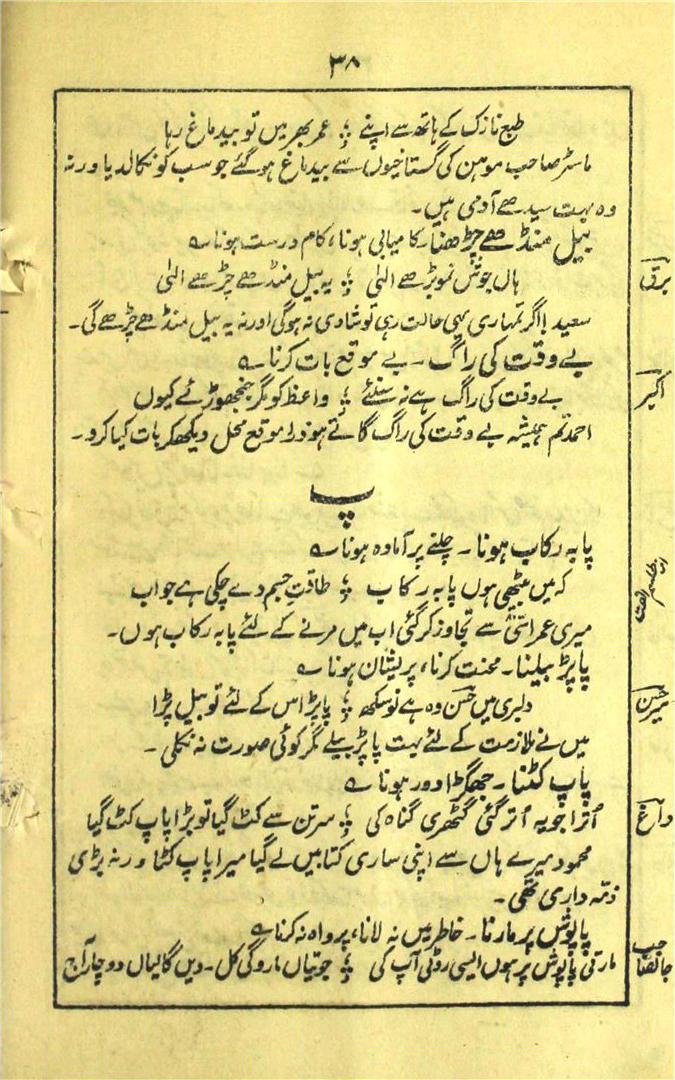 ۳۸
طبع نازک کے ہاتھ سے اپنے ؛ عمر بھر میں تو بیدماغ رہا
ماسٹر صاحب موہن کی گستاخیوں سے بیدماغ ہو گئے جو سب کو نکالدیا ورنہ
وہ بہت سیدھے آدمی ہیں۔
بیل منڈھے چڑھنا۔ کامیابی ہونا، کام درست ہونا ؎
برق
ہاں جوش نمو بڑھے الٰہی ؛ یہ بیل منڈھے چڑھے الٰہی
سعید! اگر تمہاری یہی حالت رہی تو شادی نہ ہوگی اور نہ یہ بیل منڈھے چڑھے گی۔
بے وقت کی راگ۔ بے موقع بات کرنا ؎
اکبر
بے وقت کی راگ ہے نہ سنئے ؛ واعظ کو مگر جھنجھوڑئے کیوں
احمد تم ہمیشہ بے وقت کی راگ گاتے ہو ذرا موقع محل دیکھکر بات کیا کرو۔
پ
پا بہ رکاب ہونا۔ چلنے پر آمادہ ہونا ؎
کہ میں بیٹھی ہوں پا بہ رکاب ؛ طاقتِ جسم دے چکی ہے جواب
میری عمر اسّی سے تجاوز کر گئی اب میں مرنے کے لئے پا بہ رکاب ہوں۔
پاپڑ بیلنا۔ محنت کرنا، پریشان ہونا ؎
میر حسن
دلبری میں حسن وہ ہے تو سکھ ؛ پاپڑ اس کے لئے تو بیل پڑا
میں نے ملازمت کے لئے بہت پاپڑ بیلے مگر کوئی صورت نہ نکلی۔
پاپ کٹنا۔ جھگڑا دور ہونا ؎
داغ
اُترا جو یہ اُتر گئی گٹھری گناہ کی ؛ سر تن سے کٹ گیا تو بڑا پاپ کٹ گیا
محمود میرے ہاں سے اپنی ساری کتابیں لے گیا میرا پاپ کٹا ورنہ بڑی
ذمہ داری تھی۔
پاپوش پر مارنا۔ خاطر میں نہ لانا، پرواہ نہ کرنا ؎
جانصاحب
مارتی پاپوش پر ہوں ایسی روٹی آپ کی ؛ جوتیاں مارو گی کل۔ دیں گالیاں دو چار آج